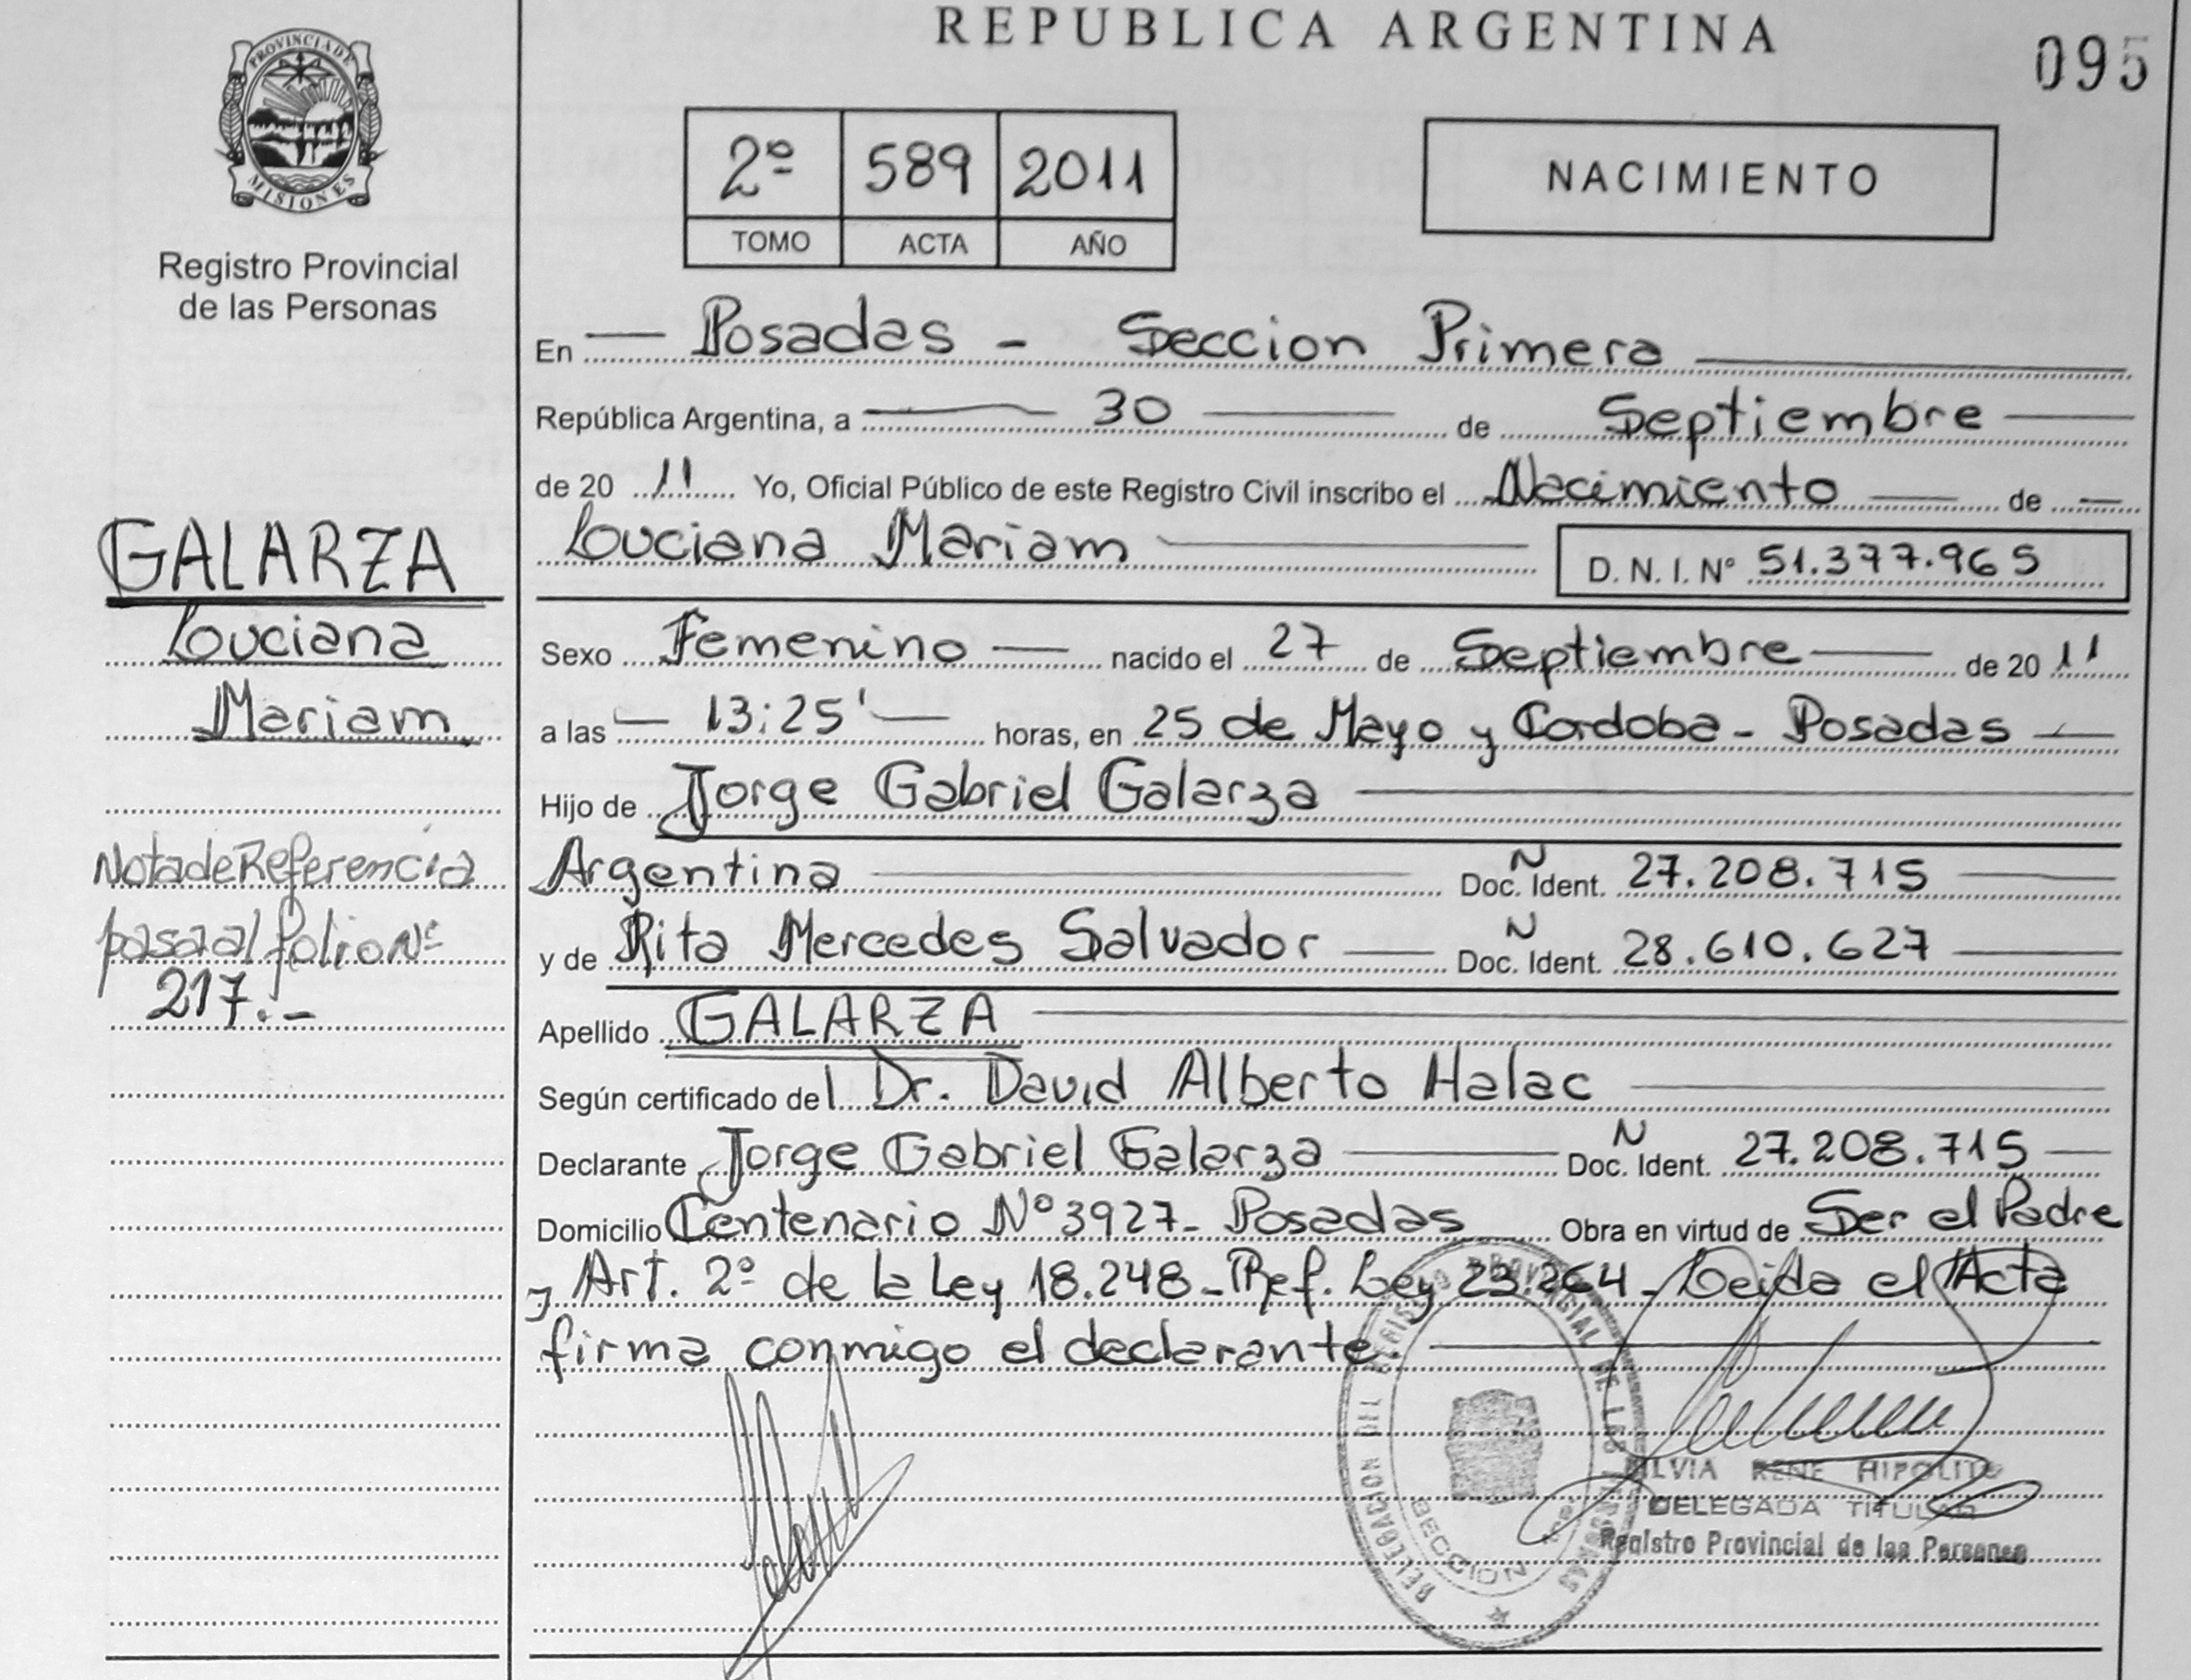 REPUBLICA ARGENTINA
095
PROVINCIA DE
MISIONES
Registro Provincial
de las Personas
2º 589 2011
TOMO ACTA AÑO
NACIMIENTO
En Posadas - Seccion Primera
República Argentina, a 30 de Septiembre
de 20 11 Yo, Oficial Público de este Registro Civil inscribo el Nacimiento de
Louciana Mariam D. N. I. Nº 51.377.965
GALARZA
Louciana
Mariam
Sexo Femenino nacido el 27 de Septiembre de 20 11
a las 13:25' horas, en 25 de Mayo y Cordoba - Posadas
Hijo de Jorge Gabriel Galarza
Argentina Doc. Ñ Ident. 27.208.715
y de Rita Mercedes Salvador Doc. N Ident. 28.610.627
Nota de Referencia
pasa al folio Nº
217.-
Apellido GALARZA
Según certificado del Dr. David Alberto Halac
Declarante Jorge Gabriel Galarza Doc. N Ident. 27.208.715
Domicilio Centenario Nº 3927- Posadas Obra en virtud de Ser el Padre
y Art. 2º de la Ley 18.248 - Ref. Ley 23.264 - Leida el Acta
firma conmigo el declarante.
DELEGACION DEL REGISTRO PROVINCIAL DE LAS PERSONAS
SECCION
SILVIA RENE HIPOLITO
DELEGADA TITULAR
Registro Provincial de las Personas